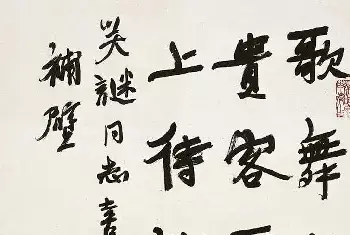 歌舞
貴客
上待
笑謎同志
補壁